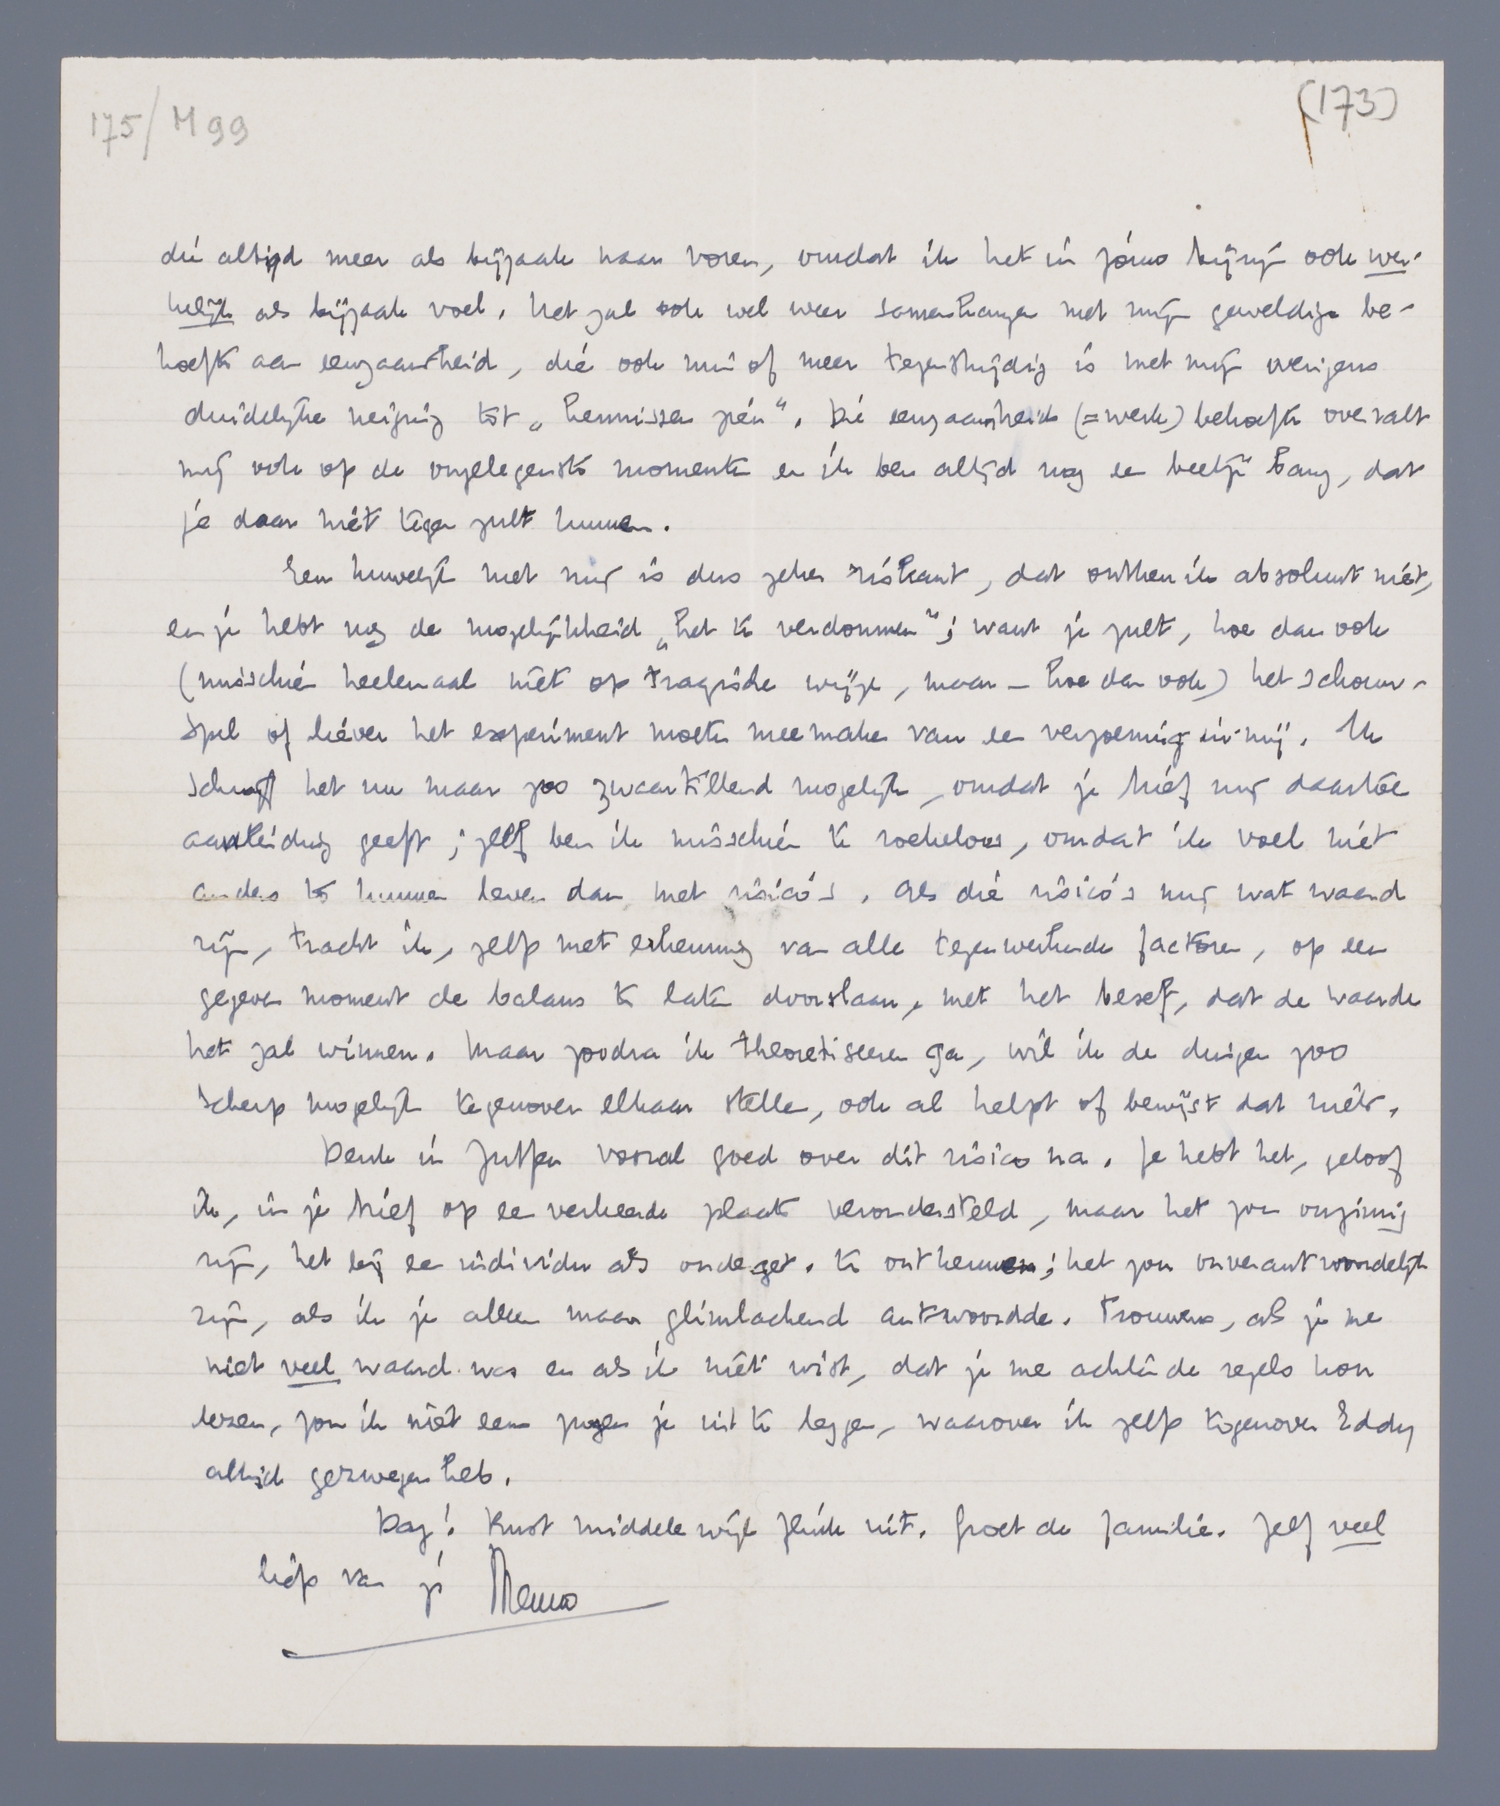 175/M99
(173)
die altijd meer als bijzaak naar voren, omdat ik het in jouw bijzijn ook wer-
kelijk als bijzaak voel. Het zal ook wel weer samenhangen met mijn geweldige be-
hoefte aan eenzaamheid, die ook min of meer tegenstrijdig is met mijn overigens
duidelijke neiging tot „kennissen zien". Die eenzaamheids (=werk) behoefte overvalt
mij ook op de ongelegenste momenten en ik ben altijd nog een beetje bang, dat
je daar niet tegen zult kunnen.
Een huwelijk met mij is dus zeker riskant, dat ontken ik absoluut niet,
en je hebt nog de mogelijkheid „het te verdommen"; want je zult, hoe dan ook
(misschien heelemaal niet op tragische wijze, maar – hoe dan ook) het schouw-
spel of liever het experiment moeten meemaken van een verzoening in mij. Ik
schrijf het nu maar zoo zwaartillend mogelijk, omdat je brief mij daartoe
aanleiding geeft; zelf ben ik misschien te roekeloos, omdat ik voel niet
anders te kunnen leven dan met risico's. Als die risico's mij wat waard
zijn, tracht ik, zelfs met erkenning van alle tegenwerkende factoren, op een
gegeven moment de balans te laten doorslaan, met het besef, dat de waarde
het zal winnen. Maar zoodra ik theoretiseeren ga, wil ik de dingen zoo
scherp mogelijk tegenover elkaar stellen, ook al helpt of bewijst dat niets.
Denk in Zutfen vooral goed over dit risico na. Je hebt het, geloof
ik, in je brief op een verkeerde plaats verondersteld, maar het zou onzinnig
zijn, het bij een individu als ondeget. te ontkennen; het zou onverantwoordelijk
zijn, als ik je alleen maar glimlachend antwoordde. Trouwens, als je me
niet veel waard was en als ik niet wist, dat je me achter de regels kon
lezen, zou ik niet eens pogen je uit te leggen, waarover ik zelfs tegenover Eddy
altijd gezwegen heb.
Dag! Rust middelerwijl flink uit. Groet de familie. Zelf veel
liefs van je Menno